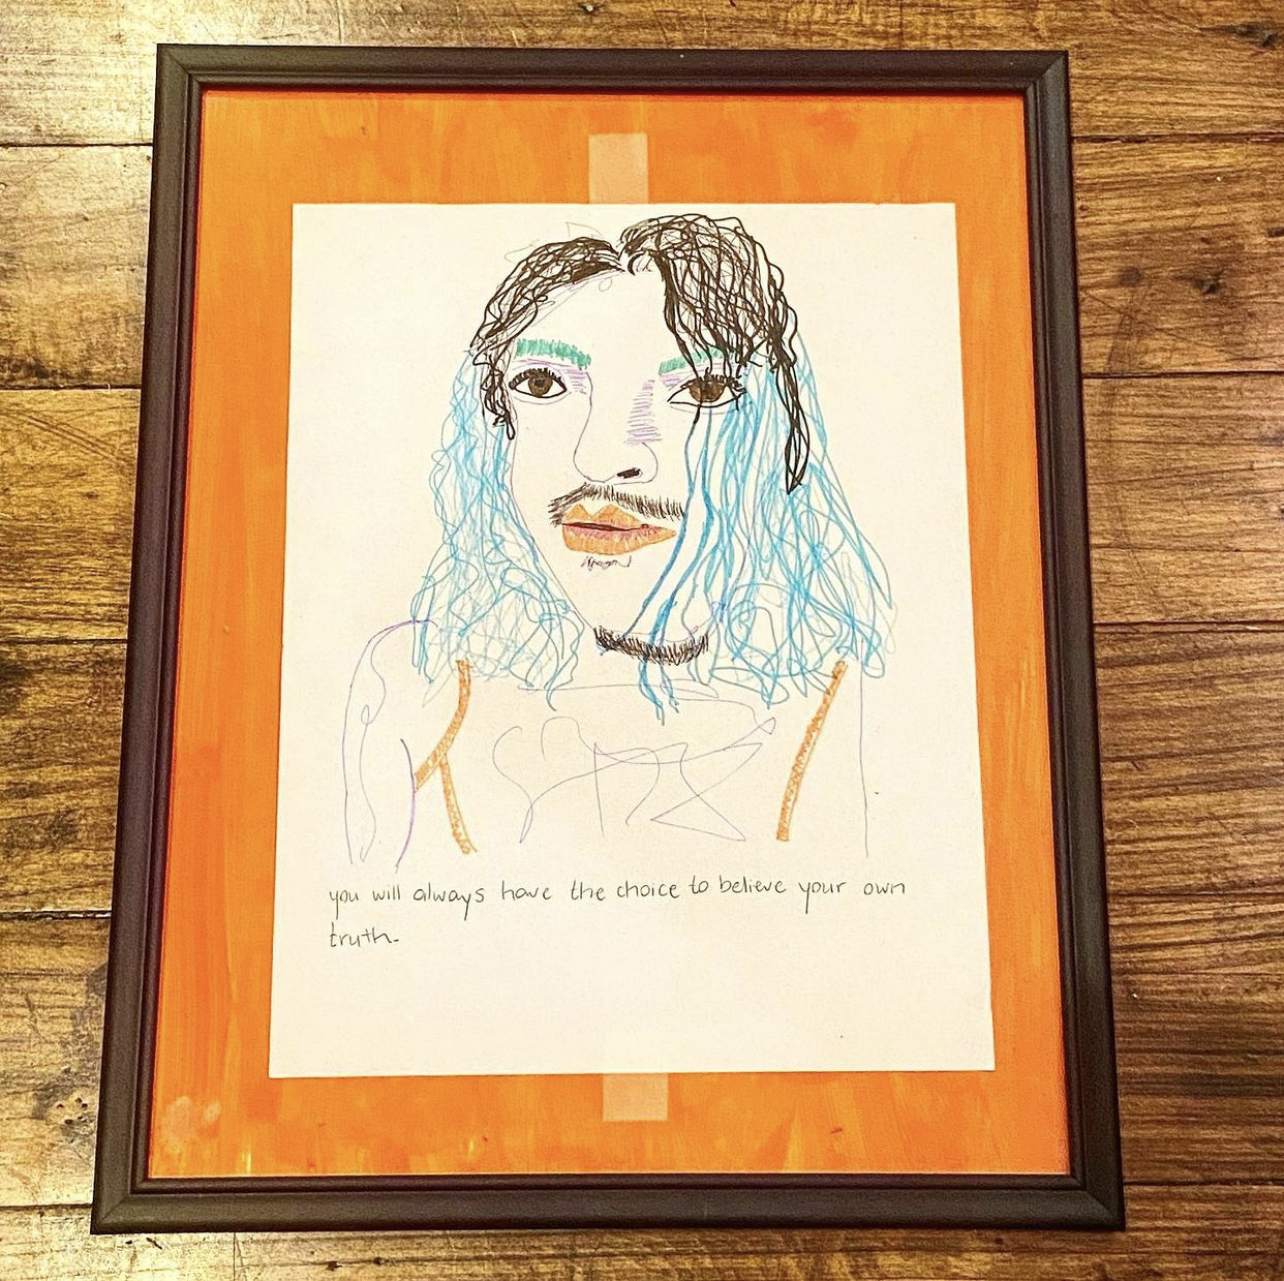 you will always have the choice to believe your own
truth.